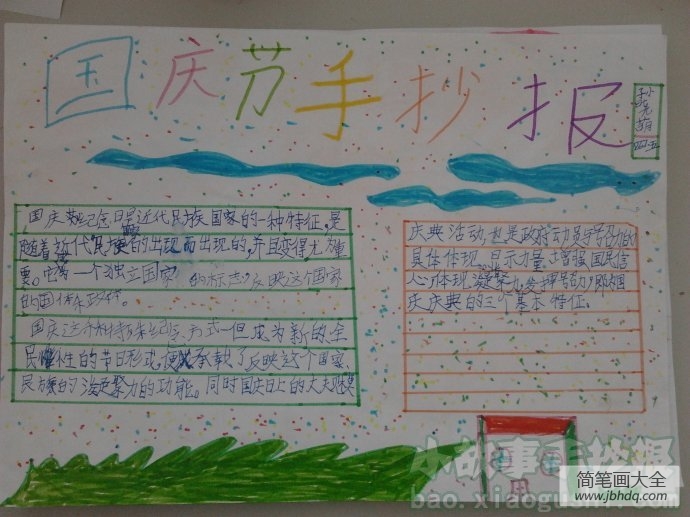 国庆节手抄报
国庆纪念日是近代民族国家的一种特征,是
随着近代民族的出现而出现的,并且变得尤为重
要。它 一个独立国家 的标志,反映这个国家
的国体和政体。
国庆这种特殊纪念方式一但成为新的、全
民性的节日形式,便承载了反映这个国家、
民族的凝聚力的功能。同时国庆日上的大规模
庆典活动,也是政府动员与号召力的
具体体现。显示力量、增强国民信
心,体现凝聚力,发挥号召力,即为国
庆庆典的三个基本特征。
小故事手抄报
bao.xiaogushi.com
简笔画大全
www.jbhdq.com